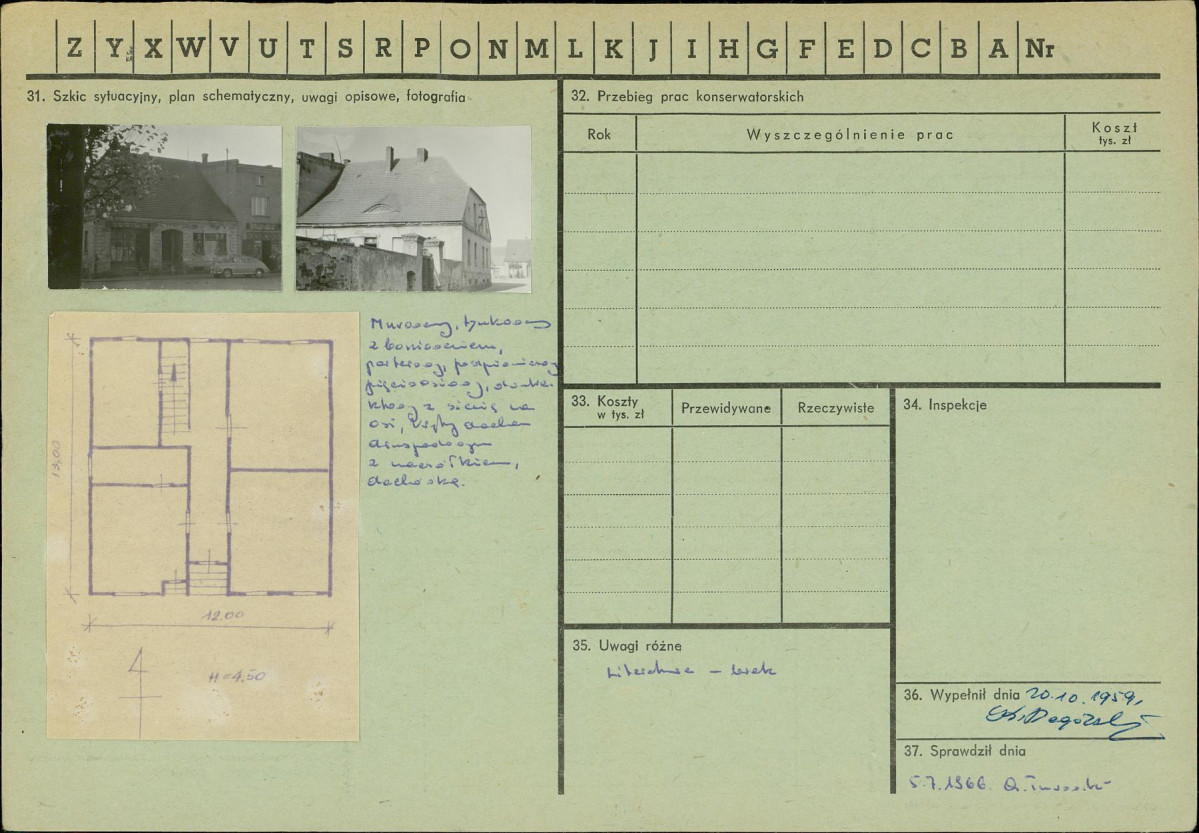 Z Y X W V U T S R P O N M L K J I H G F E D C B A Nr
31. Szkic sytuacyjny, plan schematyczny, uwagi opisowe, fotografia
Murowany, tynkowany
z boniowaniem,
parterowy, podpiwniczony
pięcioosiowy, dwutra-
ktowy z sienią na
osi, kryty dachem
dwuspadowym
z naczółkiem,
dachówką.
13,00
12.00
4
H=4,50
32. Przebieg prac konserwatorskich
Rok
Wyszczególnienie prac
Koszt
tys. zł
33. Koszty
w tys. zł
Przewidywane
Rzeczywiste
34. Inspekcje
35. Uwagi różne
Literatura – brak
36. Wypełnił dnia 20.10.1959,
37. Sprawdził dnia
5.7.1966.